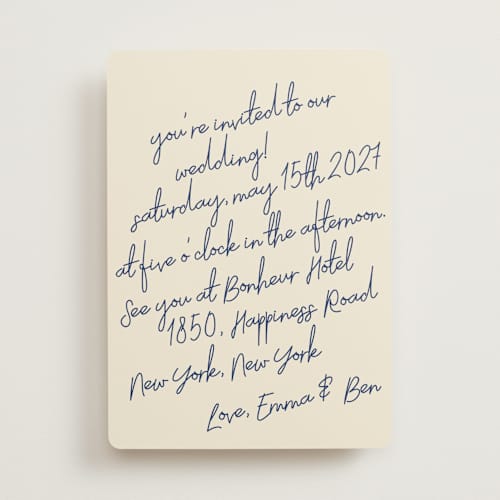 you're invited to our
wedding!
saturday, may 15th 2027
at five o'clock in the afternoon.
See you at Bonheur Hotel
1850, Happiness Road
New York, New York
Love, Emma & Ben